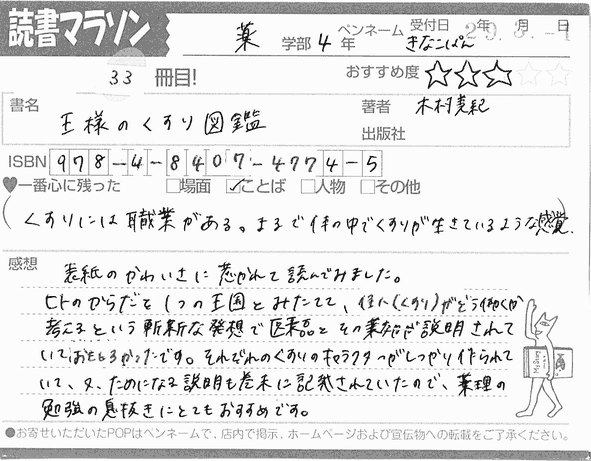 読書マラソン
薬 学部 4 年 ペンネーム きなこぱん 受付日 年 月 日
29.3.-1
33 冊目! おすすめ度
書名 王様のくすり図鑑 著者 木村美紀
出版社
ISBN 978-4-8407-4774-5
♥一番心に残った □場面 ☑ことば □人物 □その他
(くすりには職業がある。まるで体の中でくすりが生きているような感覚。)
感想 表紙のかわいさに惹かれて読んでみました。
ヒトのからだを1つの王国とみたてて、住人(くすり)がどう働くか
考えるという斬新な発想で医薬品とその薬効が説明されて
いておもしろかったです。それぞれのくすりのキャラクターがしっかり作られて
いて、又、ためになる説明も巻末に記載されていたので、薬理の
勉強の息抜きにとてもおすすめです。
●お寄せいただいたPOPはペンネームで、店内で掲示、ホームページおよび宣伝物への転載をご了承ください。